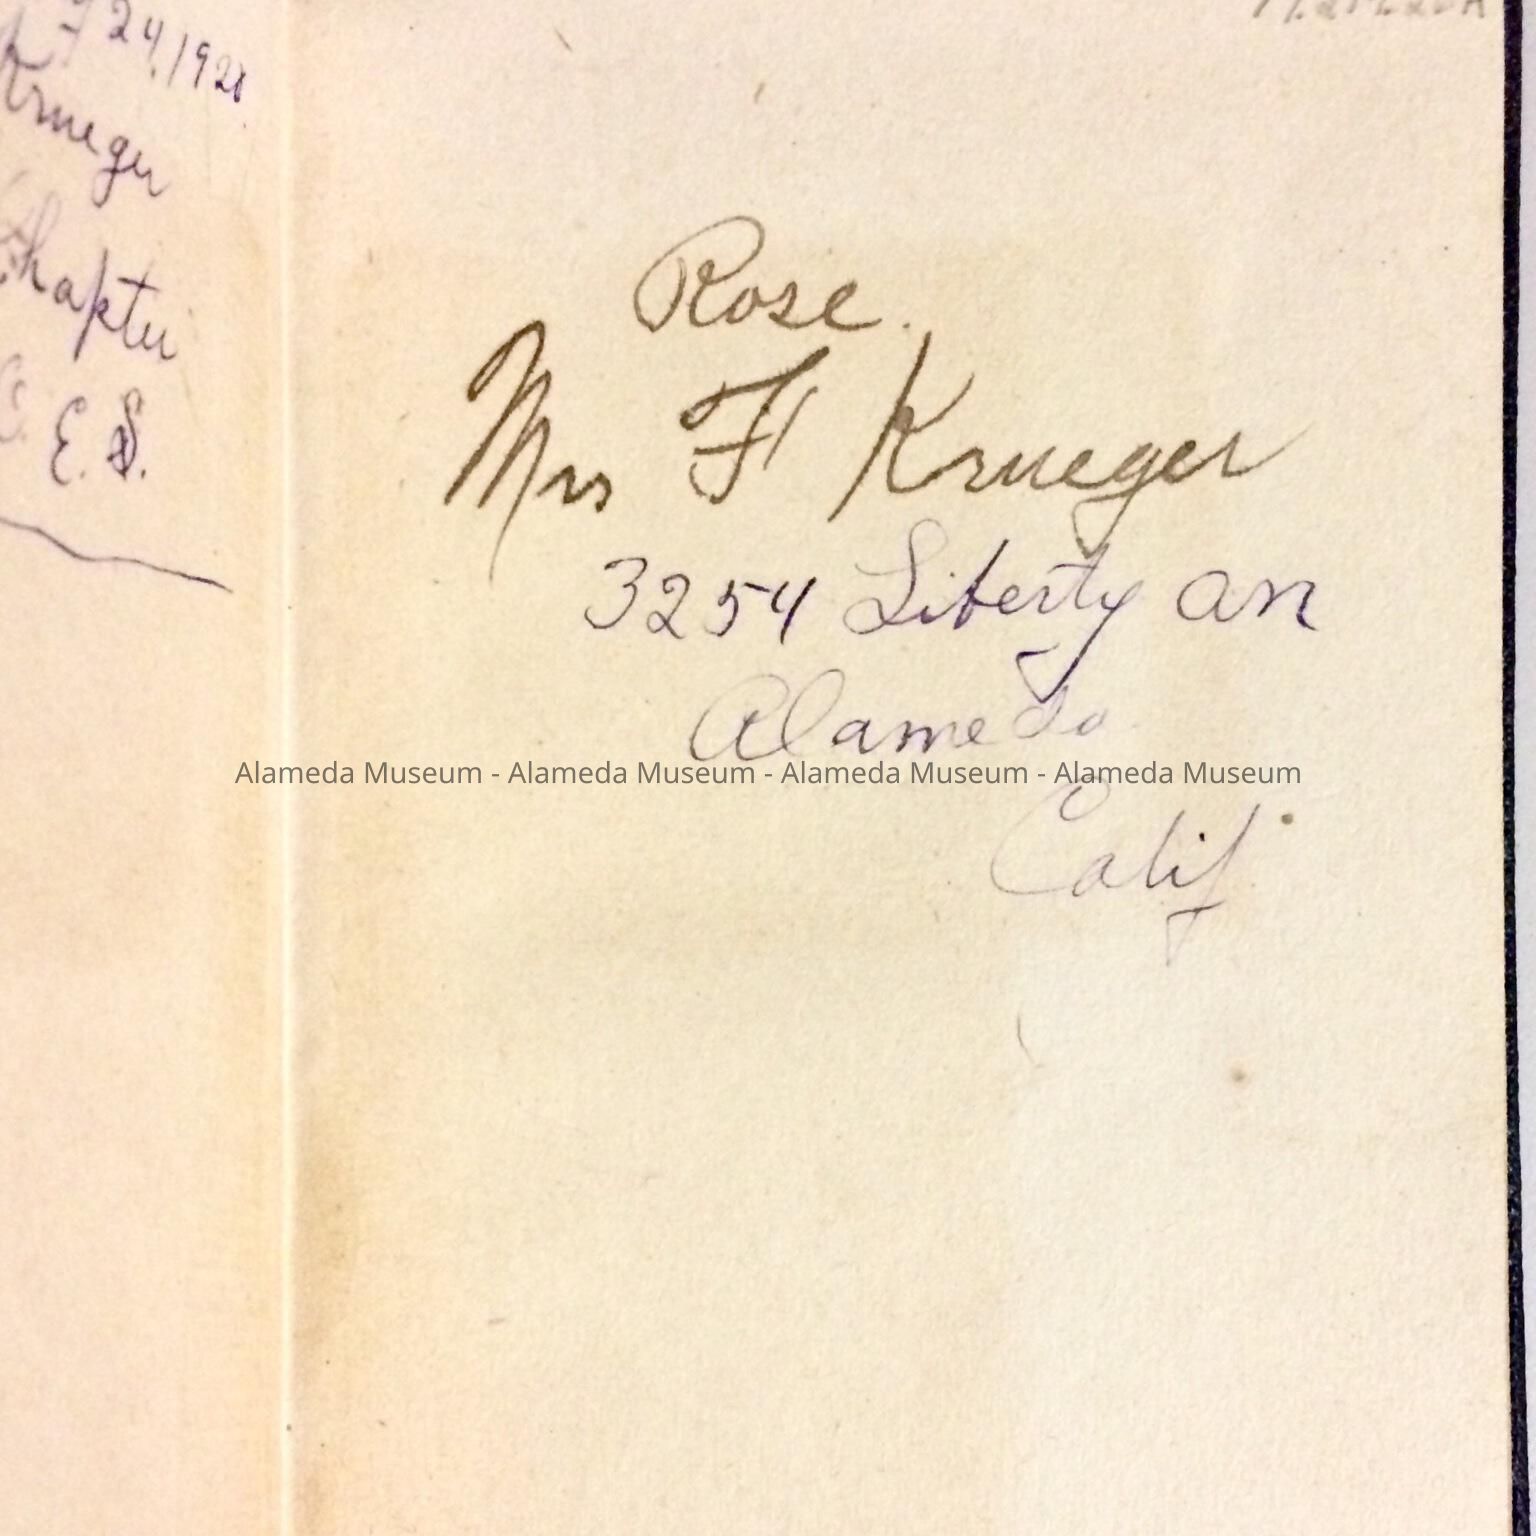 24, 1928
Krueger
Chapter
E. S.
Rose.
Mrs F Krueger
3254 Liberty av
Alameda
Calif
Alameda Museum - Alameda Museum - Alameda Museum - Alameda Museum